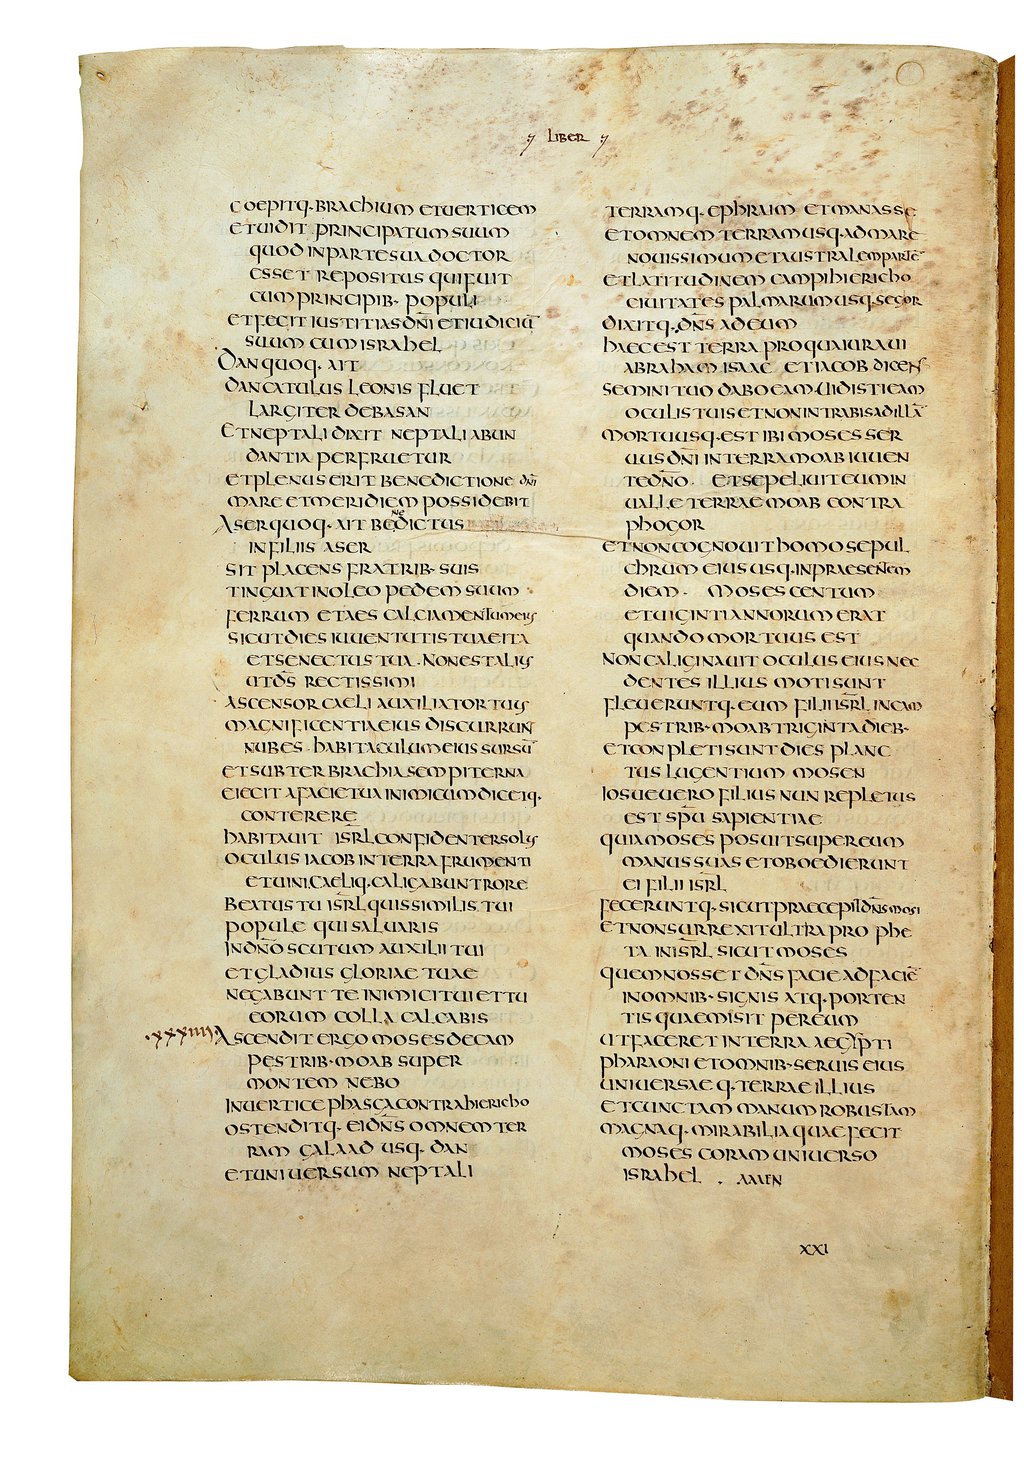 LIBER
COEPITQ· BRACHIUM ETUERTICEM
ETUIDIT PRINCIPATUM SUUM
QUOD INPARTESUA DOCTOR
ESSET REPOSITUS QUIFUIT
CUMPRINCIPIB· POPULI
ETFECIT IUSTITIAS DN̄I ETIUDICIŪ
SUUM CUMISRAHEL
DANQUOQ· AIT
DANCATULUS LEONIS FLUET
LARGITER DEBASAN
ETNEPTALI DIXIT NEPTALI ABUN
DANTIA PERFRUETUR
ETPLENUS ERIT BENEDICTIONE DN̄I
MARE ETMERIDIEM POSSIDEBIT
ASERQUOQ· AIT BENEDICTUS
INFILIIS ASER
SIT PLACENS FRATRIB· SUIS
TINGUAT INOLEO PEDEM SUUM
FERRUM ETAES CALCIAMENTUMEIUS
SICUTDIES IUUENTUTIS TUAEITA
ETSENECTUS TUA· NONESTALIUS
UTD̄S RECTISSIMI
ASCENSOR CAELI AUXILIATOR TUUS
MAGNIFICENTIAEIUS DISCURRUN
NUBES· HABITACULUMEIUS SURSŪ
ETSUBTER BRACHIA SEMPITERNA
EIECIT AFACIETUA INIMICUM DICETQ·
CONTERERE
HABITAUIT ISR̄L CONFIDENTERSOLUS
OCULUS IACOB INTERRA FRUMENTI
ETUINI, CAELIQ· CALIGABUNTRORE
BEATUS TU ISR̄L QUISSIMILIS TUI
POPULE QUI SALUARIS
INDN̄O SCUTUM AUXILII TUI
ETGLADIUS GLORIAE TUAE
NEGABUNT TE INIMICI TUI ETTU
EORUM COLLA CALCABIS
·XXXIIII· ASCENDIT ERGO MOSES DECAM
PESTRIB· MOAB SUPER
MONTEM NEBO
INUERTICE PHASGA CONTRA HIERICHO
OSTENDITQ· EI DN̄S OMNEM TER
RAM GALAAD USQ· DAN
ETUNIUERSUM NEPTALI
TERRAMQ· EPHRAIM ETMANASSE
ETOMNEM TERRAM USQ· ADMARE
NOUISSIMUM ETAUSTRALEMPARTĒ
ETLATITUDINEM CAMPI HIERICHO
CIUITATES PALMARUM USQ· SEGOR
DIXITQ· DN̄S ADEUM
HAECEST TERRA PROQUA IURAUI
ABRAHAM ISAAC ETIACOB DICENS
SEMINI TUO DABO EAM· UIDISTI EAM
OCULIS TUIS ET NON INTRABIS AD ILLĀ
MORTUUSQ· EST IBI MOSES SER
UUS DN̄I INTERRA MOAB IUUEN
TE DN̄O· ETSEPELIUIT EUM IN
UALLE TERRAE MOAB CONTRA
PHOGOR
ETNONCOGNOUIT HOMO SEPUL
CHRUM EIUS USQ· INPRAESENTEM
DIEM· MOSES CENTUM
ETUIGINTI ANNORUM ERAT
QUANDO MORTUUS EST
NON CALIGINAUIT OCULUS EIUS NEC
DENTES ILLIUS MOTI SUNT
FLEUERUNTQ· EUM FILII ISR̄L INCAM
PESTRIB· MOAB TRIGINTA DIEB·
ETCONPLETI SUNT DIES PLANC
TUS LUGENTIUM MOSEN
IOSUEUERO FILIUS NUN REPLETUS
EST SPŪ SAPIENTIAE
QUIA MOSES POSUIT SUPER EUM
MANUS SUAS ETOBOEDIERUNT
EI FILII ISR̄L
FECERUNTQ· SICUT PRAECEPIT DN̄S MOSI
ETNONSURREXIT ULTRA PROPHE
TA INISR̄L SICUT MOSES
QUEMNOSSET DN̄S FACIE ADFACIĒ
INOMNIB· SIGNIS ATQ· PORTEN
TIS QUAE MISIT PER EUM
UTFACERET INTERRA AEGYPTI
PHARAONI ETOMNIB· SERUIS EIUS
UNIUERSAEQ· TERRAE ILLIUS
ETCUNCTAM MANUM ROBUSTAM
MAGNAQ· MIRABILIA QUAE FECIT
MOSES CORAM UNIUERSO
ISRAHEL · AMEN
XXI